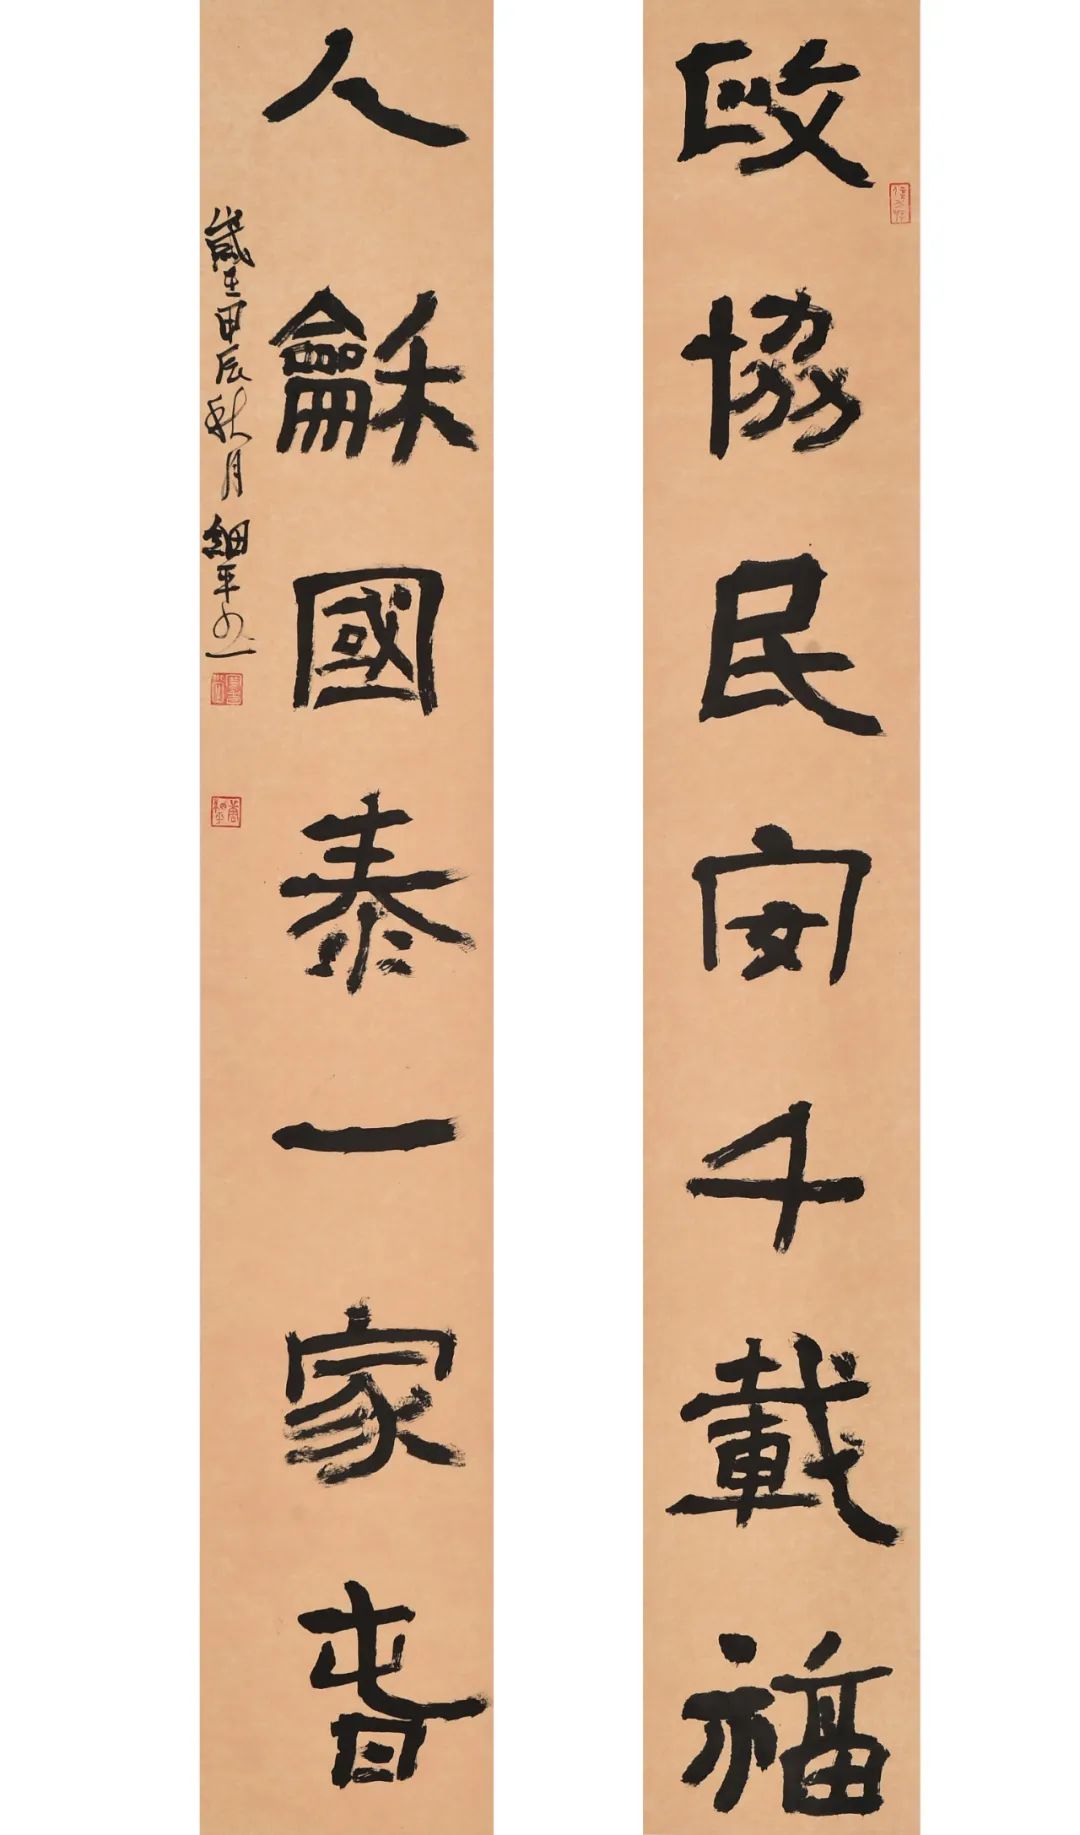 政協民安千載福
人龢國泰一家春
歲在甲辰秋月 細平書